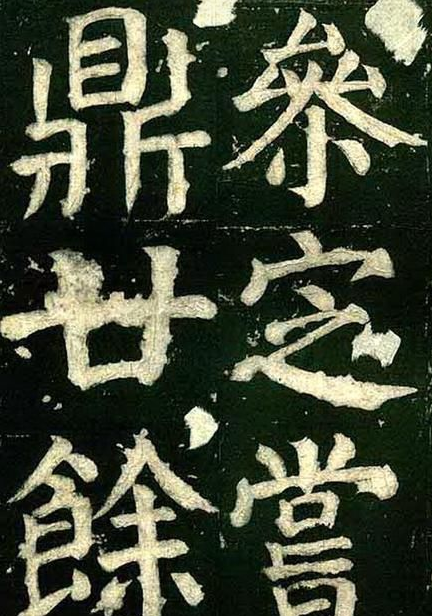 參定嘗
鼎廿餘